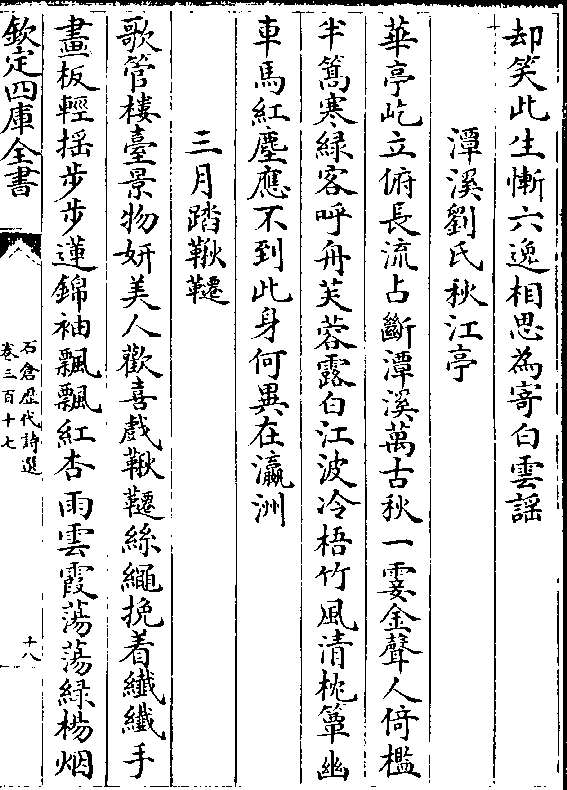 却笑此生慚六逸相思為寄白雲謡
潭溪劉氏秋江亭
華亭屹立俯長流占斷潭溪萬古秋一霎金聲人倚檻
半篙寒緑客呼舟芙蓉露白江波冷梧竹風清枕簟幽
車馬紅塵應不到此身何異在瀛洲
三月踏鞦韆
歌管樓臺景物妍美人歡喜戲鞦韆絲繩挽着纖纖手
畫板輕揺步步蓮錦袖飄飄紅杏雨雲霞蕩蕩緑楊烟
欽定四庫全書
石倉歴代詩選
卷三百十七
十八